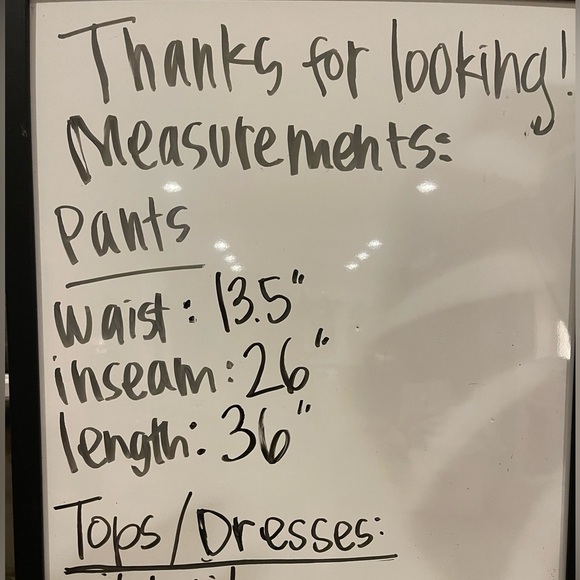 Thanks for looking!
Measurements:
Pants
waist: 13.5"
inseam: 26"
length: 36"
Tops/Dresses: